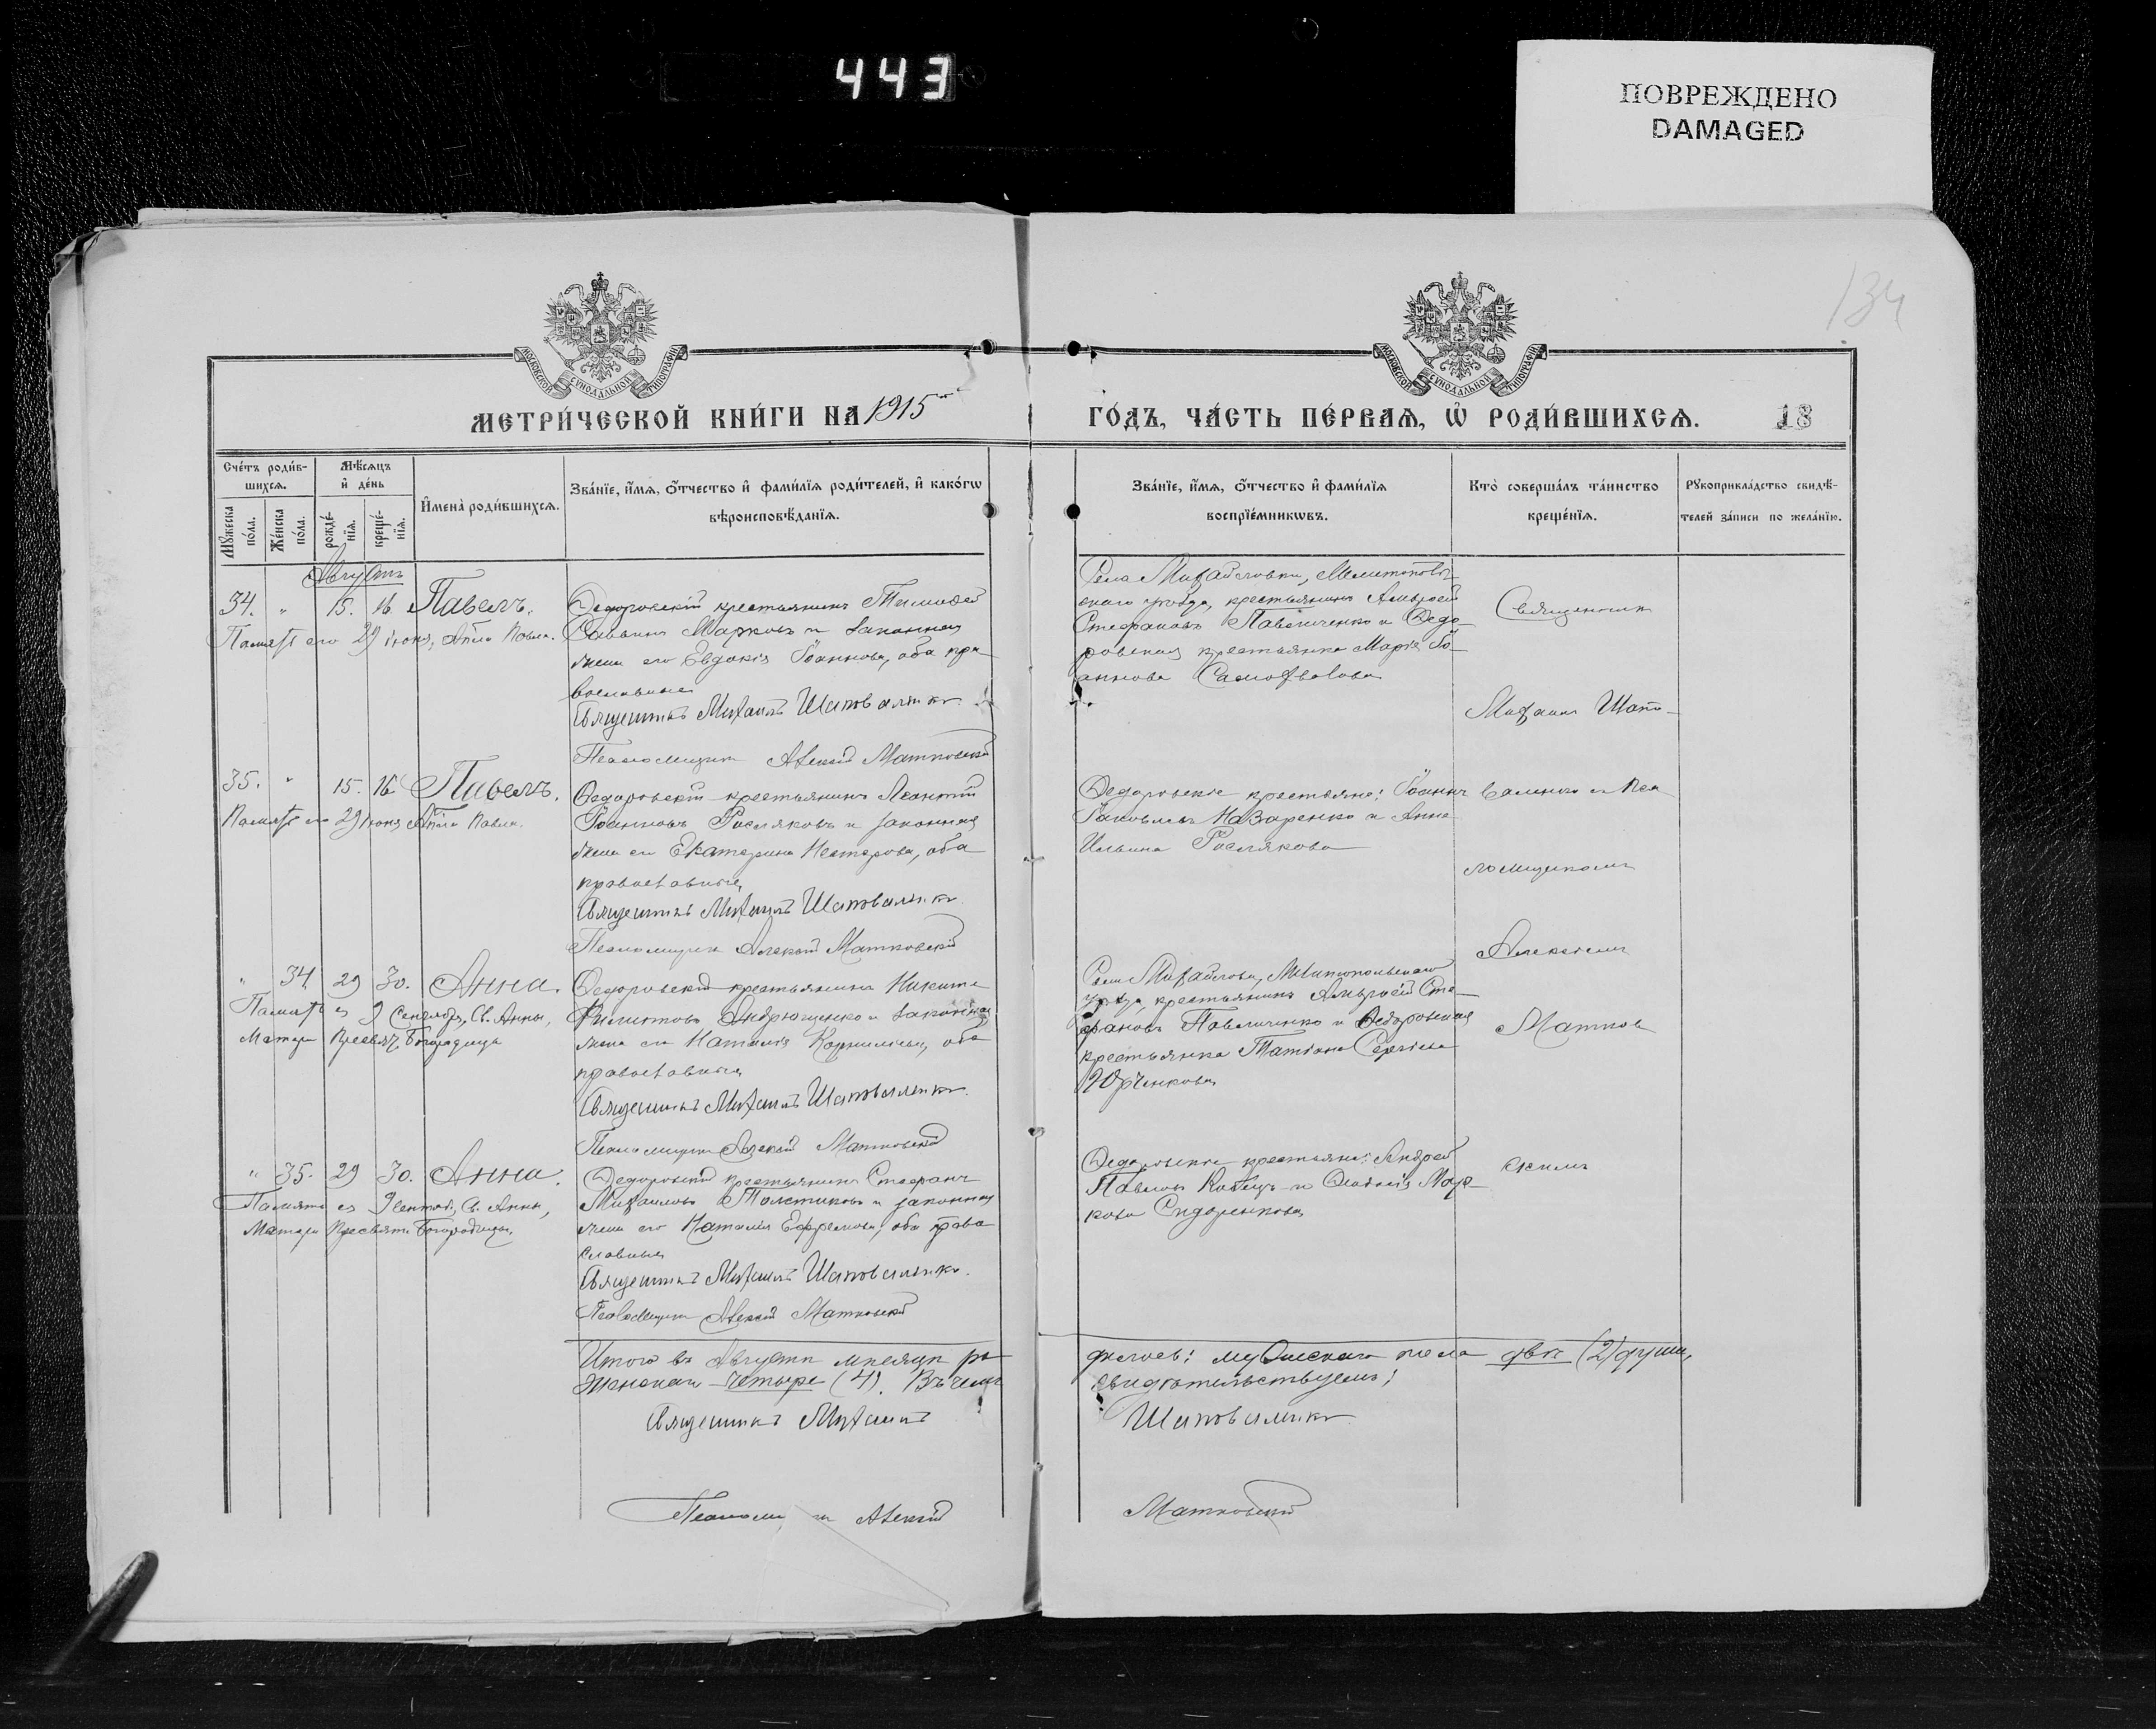 443
ПОВРЕЖДЕНО
DAMAGED
134
МОСКОВСКОЙ СУНОДАЛЬНОЙ ТИПОГРАФІИ
МОСКОВСКОЙ СУНОДАЛЬНОЙ ТИПОГРАФІИ
МЕТРИ́ЧЕСКОЙ КНИ́ГИ НА 1915 ГО́ДЪ, ЧА́СТЬ ПЕ́РВАѦ, Ѡ РОДИ́ВШИХСѦ. 18
Сче́тъ роди́в-
шихсѧ.
Мꙋжеска по́ла.
Же́нска по́ла.
Мѣ́сѧцъ
и де́нь
рожде́-
нїѧ.
креще́-
нїѧ.
Имена̀ роди́вшихсѧ.
Зва́нїе, и́мѧ, о́тчество и фами́лїѧ роди́телей, и како́гѡ
вѣроисповѣ́данїѧ.
Зва́нїе, и́мѧ, о́тчество и фами́лїѧ
воспрїе́мникѡвъ.
Кто̀ соверша́лъ та́инство
креще́нїѧ.
Рꙋкоприкла́дство свидѣ́-
телей за́писи по жела́нїю.
Августъ
34. " 15. 16 Павелъ.
Память его 29 іюня, Апла Павла.
Ѳедоровскій крестьянинъ Тимоѳей
Саввинъ Марковъ и законная
жена его Евдокія Іоаннова, оба пра
вославные
Священникъ Михаилъ Шаповаленко
Псаломщикъ Алексій Матковскій
Села Михайловки, Мелитополь
скаго уѣзда, крестьянинъ Амвросій
Стефановъ Павличенко и Ѳедо-
ровская крестьянка Марія Іо-
аннова Самофалова
Священникъ
Михаилъ Шапо-
35. " 15. 16 Павелъ.
Память его 29 іюня Апла Павла.
Ѳедоровскій крестьянинъ Леонтій
Іоанновъ Росляковъ и законная
жена его Екатерина Нестерова, оба
православные,
Священникъ Михаилъ Шаповаленко
Псаломщикъ Алексій Матковскій
Ѳедоровскіе крестьяне: Іоаннъ
Іаковлевъ Назаренко и Анна
Ильина Рослякова
валенко и Пса
ломщикомъ
Алексѣемъ
" 34. 29 30. Анна.
Память ея 9 Сентября, Св. Анны,
Матери Пресвят. Богородицы
Ѳедоровскій крестьянинъ Никита
Филиповъ Андрющенко и законная
жена его Наталія Корнилова, оба
православные,
Священникъ Михаилъ Шаповаленко.
Псаломщикъ Алексій Матковскій
Села Михайловки, Мелитопольскаго
уѣзда, крестьянинъ Амвросій Сте-
фановъ Павличенко и Ѳедоровская
крестьянка Татіана Сергіева
Юрченкова
Матков
" 35. 29 30. Анна.
Память ея 9 Сентяб., Св. Анны,
Матери Пресвят. Богородицы.
Ѳедоровскій крестьянинъ Стефанъ
Михаиловъ Толстиковъ и законная
жена его Наталія Ефремова, оба право
славные
Священникъ Михаилъ Шаповаленко.
Псаломщикъ Алексій Матковскій
Ѳедоровскіе крестьяне: Андрей
Павловъ и Мар-
кова Сидоренкова
скимъ
Итого въ Августѣ мѣсяцѣ ро
дилось: мужескаго пола двѣ (2) души,
Женскаго четыре (4). Въ чемъ
свидѣтельствуемъ:
Священникъ Михаилъ
Шаповаленко
Псаломщикъ Алексій
Матковскій